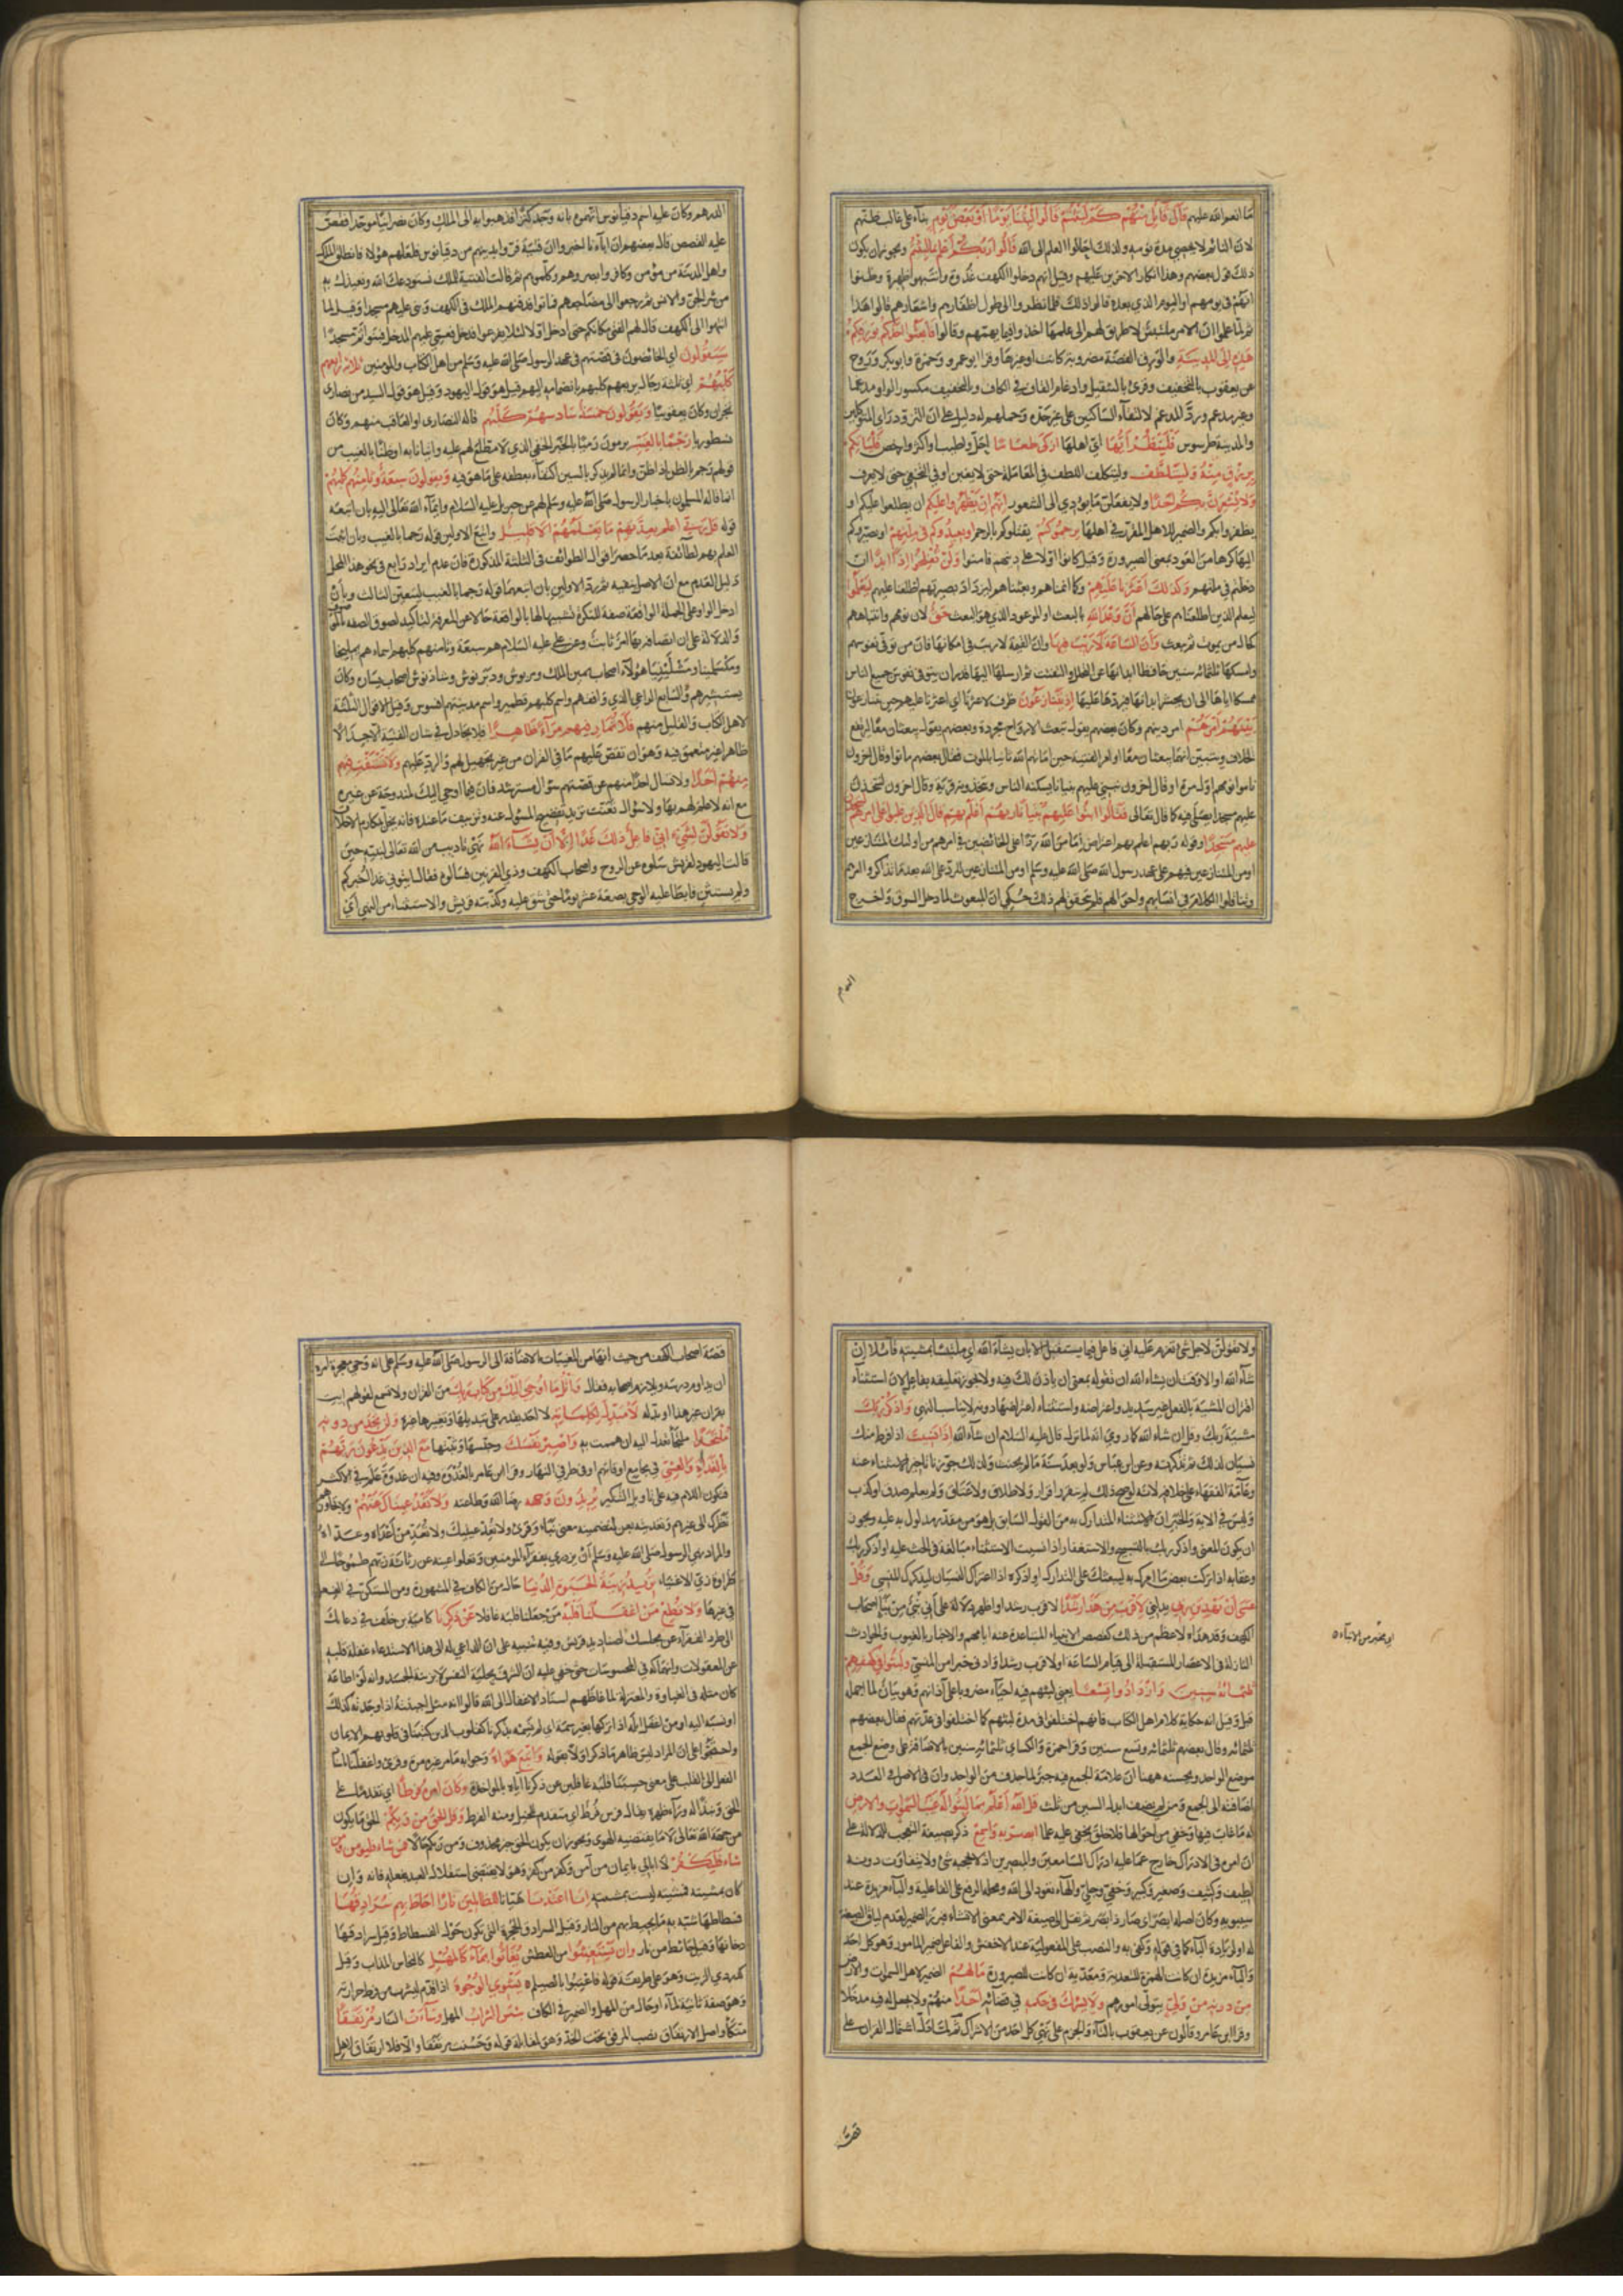 ما انعم الله عليهم قَالَ قَآئِلٌ مِنْهُمْ كَمْ لَبِثْتُمْ قَالُوا لَبِثْنَا يَوْمًا أَوْ بَعْضَ يَوْمٍ بناء على غالب ظنهم
لان النائم لا يحصي مدة نومه ولذلك احالوا العلم الى الله قَالُوا رَبُّكُمْ أَعْلَمُ بِمَا لَبِثْتُمْ ويجوز ان يكون
ذلك قول بعضهم وهذا انكار الاخرين عليهم وقيل انهم دخلوا الكهف غدوة وانتبهوا ظهيرة وظنوا
انهم في يومهم او اليوم الذي بعده قالوا ذلك فلما نظروا الى طول اظفارهم واشعارهم قالوا هذا
ثم لما علموا ان الامر ملتبس لا طريق لهم الى علمه اخذوا فيما يهمهم وقالوا فَابْعَثُوا أَحَدَكُمْ بِوَرِقِكُمْ
هَذِهِ إِلَى الْمَدِينَةِ والورق الفضة مضروبة كانت او غيرها وقرا ابو عمرو وحمزة وابو بكر وروح
عن يعقوب بالتخفيف وقرئ بالتثقيل وادغام القاف في الكاف وبالتخفيف مكسور الواو مدغما
وغير مدغم ورد المدغم لالتقاء الساكنين على غير حده وحملهم له دليل على ان التزود راي المتوكلين
والمدينة طرسوس فَلْيَنْظُرْ أَيُّهَا اي اهلها أَزْكَى طَعَامًا احل واطيب او اكثر وارخص فَلْيَأْتِكُمْ
بِرِزْقٍ مِنْهُ وَلْيَتَلَطَّفْ وليتكلف اللطف في المعاملة حتى لا يغبن او في التخفي حتى لا يعرف
وَلَا يُشْعِرَنَّ بِكُمْ أَحَدًا ولا يفعلن ما يؤدي الى الشعور إِنَّهُمْ إِنْ يَظْهَرُوا عَلَيْكُمْ ان يطلعوا عليكم او
يظفروا بكم والضمير للاهل المقدر في ايها يَرْجُمُوكُمْ يقتلوكم بالرجم أَوْ يُعِيدُوكُمْ فِي مِلَّتِهِمْ او يصيروكم
اليها كرها من العود بمعنى الصيرورة وقيل كانوا اولا على دينهم فامنوا وَلَنْ تُفْلِحُوا إِذًا أَبَدًا ان
دخلتم في ملتهم وَكَذَلِكَ أَعْثَرْنَا عَلَيْهِمْ وكما انمناهم وبعثناهم ليزداد بصيرتهم اطلعنا عليهم لِيَعْلَمُوا
ليعلم الذين اطلعناهم على حالهم أَنَّ وَعْدَ اللهِ بالبعث او الموعود الذي هو البعث حَقٌّ لان نومهم وانتباههم
كحال من يموت ثم يبعث وَأَنَّ السَّاعَةَ لَا رَيْبَ فِيهَا وان القيمة لا ريب في امكانها فان من توفى نفوسهم
وامسكها ثلثمائة سنين حافظا ابدانها عن التحلل والتفتت ثم ارسلها اليها قدر ان يتوفى نفوس جميع الناس
ممسكا اياها الى ان يحشر ابدانها فيردها عليها إِذْ يَتَنَازَعُونَ ظرف لاعثرنا اي اعثرنا عليهم حين يتنازعون
بَيْنَهُمْ أَمْرَهُمْ امر دينهم وكان بعضهم يقول تبعث الارواح مجردة وبعضهم يقول يبعثان معا ليرتفع
الخلاف ويتبين انهما يبعثان معا او امر الفتية حين اماتهم الله ثانيا بالموت فقال بعضهم ماتوا وقال اخرون
ناموا نومهم اول مرة او قال اخرون نبني عليهم بنيانا يسكنه الناس ويتخذونه قرية وقال اخرون لنتخذن
عليهم مسجدا يصلى فيه كما قال تعالى فَقَالُوا ابْنُوا عَلَيْهِمْ بُنْيَانًا رَبُّهُمْ أَعْلَمُ بِهِمْ قَالَ الَّذِينَ غَلَبُوا عَلَى أَمْرِهِمْ لَنَتَّخِذَنَّ
عَلَيْهِمْ مَسْجِدًا وقوله ربهم اعلم بهم اعتراض اما من الله ردا على الخائضين في امرهم من اولئك المتنازعين
او من المتنازعين فيهم على عهد رسول الله صلى الله عليه وسلم او من المتنازعين للرد على الله بعد ما تذاكروا امرهم
وتناقلوا الكلام في انسابهم واحوالهم فلم يتحقق لهم ذلك حكي ان المبعوث لما دخل السوق واخرج
الدرهم وكان عليه اسم دقيانوس اتهموه بانه وجد كنزا فذهبوا به الى الملك وكان نصرانيا موحدا فقص
عليه القصص فقال بعضهم ان آباءنا اخبرونا ان فتية فروا بدينهم من دقيانوس فلعلهم هؤلاء فانطلق الملك
واهل المدينة من مؤمن وكافر وابصروهم وكلموهم ثم قالت الفتية للملك نستودعك الله ونعيذك به
من شر الجن والانس ثم رجعوا الى مضاجعهم فماتوا فدفنهم الملك في الكهف وبنى عليهم مسجدا وقيل لما
انتهوا الى الكهف قال لهم الفتى مكانكم حتى ادخل اولا لئلا يفزعوا فدخل فعمي عليهم المدخل فبنوا ثم مسجدا
سَيَقُولُونَ اي الخائضون في قصتهم في عهد الرسول صلى الله عليه وسلم من اهل الكتاب والمومنين ثَلَاثَةٌ رَابِعُهُمْ
كَلْبُهُمْ اي ثلثة رجال يربعهم كلبهم بانضمامه اليهم قيل هو قول اليهود وقيل هو قول السيد من نصارى
نجران وكان يعقوبيا وَيَقُولُونَ خَمْسَةٌ سَادِسُهُمْ كَلْبُهُمْ قاله النصارى او العاقب منهم وكان
نسطوريا رَجْمًا بِالْغَيْبِ يرمون رميا بالخبر الخفي الذي لا مطلع لهم عليه واتيانا به او ظنا بالغيب من
قولهم رجم بالظن اذا ظن وانما لم يذكر بالسين اكتفاء بعطفه على ما هو فيه وَيَقُولُونَ سَبْعَةٌ وَثَامِنُهُمْ كَلْبُهُمْ
انما قاله المسلمون باخبار الرسول صلى الله عليه وسلم لهم عن جبريل عليه السلام وايماء الله تعالى اليه بان اتبعه
قوله قُلْ رَبِّي أَعْلَمُ بِعِدَّتِهِمْ مَا يَعْلَمُهُمْ إِلَّا قَلِيلٌ واتبع الاولين قوله رجما بالغيب وبان اثبت
العلم بهم لطائفة بعد ما حصر اقوال الطوائف في الثلثة المذكورة فان عدم ايراد رابع في نحو هذا المحل
دليل العدم مع ان الاصل ينفيه ثم رد الاولين بان اتبعهما قوله رجما بالغيب ليتعين الثالث وبان
ادخل الواو على الجملة الواقعة صفة للنكرة تشبيها لها بالواقعة حالا عن المعرفة لتاكيد لصوق الصفة بالموصوف
والدلالة على ان اتصافه بها امر ثابت وعن علي عليه السلام هم سبعة وثامنهم كلبهم اسماءهم يمليخا
ومكشلينيا ومشلينيا هؤلاء اصحاب يمين الملك ومرنوش ودبرنوش وشاذنوش اصحاب يساره وكان
يستشيرهم والسابع الراعي الذي وافقهم واسم كلبهم قطمير واسم مدينتهم افسوس وقيل الاقوال الثلثة
لاهل الكتاب والقليل منهم فَلَا تُمَارِ فِيهِمْ إِلَّا مِرَآءً ظَاهِرًا فلا تجادل في شان الفتية الا جدالا
ظاهرا غير متعمق فيه وهو ان تقص عليهم ما في القران من غير تجهيل لهم والرد عليهم وَلَا تَسْتَفْتِ فِيهِمْ
مِنْهُمْ أَحَدًا ولا تسال احدا منهم عن قصتهم سؤال مسترشد فان فيما اوحي اليك لمندوحة عن غيره
مع انه لا علم لهم بها ولا سؤال تعنت تريد تفضيح المسؤل عنه وتزييف ما عنده فانه يخل بمكارم الاخلاق
وَلَا تَقُولَنَّ لِشَيْءٍ إِنِّي فَاعِلٌ ذَلِكَ غَدًا إِلَّا أَنْ يَشَآءَ اللهُ نهي تاديب من الله تعالى لنبيه حين
قالت اليهود لقريش سلوه عن الروح واصحاب الكهف وذي القرنين فسالوه فقال ايتوني غدا اخبركم
ولم يستثن فابطا عليه الوحي بضعة عشر يوما حتى شق عليه وكذبته قريش والاستثناء من النهي اي
ولا تقولن لاجل شئ تعزم عليه اني فاعل فيما يستقبل الا بان يشاء الله اي ملتبسا بمشيته قائلا ان
شاء الله او الا وقت ان يشاء الله ان تقوله بمعنى ان ياذن لك فيه ولا يجوز تعليقه بفاعل لان استثناء
اقتران المشية بالفعل غير سديد واعتراضه واستثناء اعتراضها دونه لا يناسب النهي وَاذْكُرْ رَبَّكَ
مشية ربك وقل ان شاء الله كما روي انه لما نزل قال عليه السلام ان شاء الله إِذَا نَسِيتَ اذا فرط منك
نسيان لذلك ثم تذكرته وعن ابن عباس ولو بعد سنة ما لم يحنث ولذلك جوز تاخير الاستثناء عنه
وعامة الفقهاء على خلافه لانه لو صح ذلك لم يتقرر اقرار ولا طلاق ولا عتاق ولم يعلم صدق او كذب
وليس في الآية والخبر ان الاستثناء المتدارك به من القول السابق بل هو من مقدر مدلول به عليه ويجوز
ان يكون المعنى واذكر ربك بالتسبيح والاستغفار اذا نسيت الاستثناء مبالغة في الحث عليه او اذكر ربك
وعقابه اذا تركت بعض ما امرك به ليبعثك على التدارك او اذكره اذا اعتراك النسيان ليذكرك المنسي وَقُلْ
عَسَى أَنْ يَهْدِيَنِ رَبِّي يدلني لِأَقْرَبَ مِنْ هَذَا رَشَدًا لاقرب رشدا واظهر دلالة على اني نبي من نبا اصحاب
الكهف وقد هداه لاعظم من ذلك كقصص الانبياء المتباعدة عنه ايامهم والاخبار بالغيوب والحوادث
النازلة في الاعصار المستقبلة الى قيام الساعة او لاقرب رشدا وادنى خيرا من المنسي وَلَبِثُوا فِي كَهْفِهِمْ
ثَلَثَمِائَةٍ سِنِينَ وَازْدَادُوا تِسْعًا يعني لبثهم فيه احياء مضروبا على آذانهم وهو بيان لما اجمل
قبل وقيل انه حكاية كلام اهل الكتاب فانهم اختلفوا في مدة لبثهم كما اختلفوا في عدتهم فقال بعضهم
ثلثمائة وقال بعضهم ثلثمائة وتسع سنين وقرا حمزة والكسائي ثلثمائة سنين بالاضافة على وضع الجمع
موضع الواحد ويحسنه ههنا ان علامة الجمع فيه جبر لما حذف من الواحد وان الاصل في العدد
اضافته الى الجمع ومن لم يضف ابدل السنين من ثلث قُلِ اللهُ أَعْلَمُ بِمَا لَبِثُوا لَهُ غَيْبُ السَّمَوَاتِ وَالْأَرْضِ
له ما غاب فيها وخفي من احوالها فلا خلق يخفى عليه علما أَبْصِرْ بِهِ وَأَسْمِعْ ذكر بصيغة التعجب للدلالة على
ان امره في الادراك خارج عما عليه ادراك السامعين والمبصرين اذ لا يحجبه شئ ولا يتفاوت دونه
لطيف وكثيف وصغير وكبير وخفي وجلي والهاء تعود الى الله ومحله الرفع على الفاعلية والباء مزيدة عند
سيبويه وكان اصله ابصر اي صار ذا بصر ثم نقل الى صيغة الامر بمعنى الانشاء فبرز الضمير لعدم لياق الصيغة
له او لزيادة الباء كما في قوله وكفى به والنصب على المفعولية عند الاخفش والفاعل ضمير المامور وهو كل احد
والباء مزيدة ان كانت الهمزة للتعدية ومعدية ان كانت للصيرورة مَا لَهُمْ الضمير لاهل السموات والارض
مِنْ دُونِهِ مِنْ وَلِيٍّ يتولى امورهم وَلَا يُشْرِكُ فِي حُكْمِهِ في قضائه أَحَدًا منهم ولا يجعل له فيه مدخلا
وقرا ابن عامر وقالون عن يعقوب بالتاء والجزم على نهي كل احد من الاشراك ثم لما دل اشتمال القران على
اي بخبر من الانباء
قصة
قصة اصحاب الكهف من حيث انها من المغيبات بالاضافة الى الرسول صلى الله عليه وسلم على انه وحي معجز امره
ان يداوم درسه ويلازم اصحابه فقال وَاتْلُ مَآ أُوحِيَ إِلَيْكَ مِنْ كِتَابِ رَبِّكَ من القران ولا تسمع لقولهم ايت
بقران غير هذا او بدله لَا مُبَدِّلَ لِكَلِمَاتِهِ لا احد يقدر على تبديلها وتغييرها غيره وَلَنْ تَجِدَ مِنْ دُونِهِ
مُلْتَحَدًا ملتجأ تعدل اليه ان هممت به وَاصْبِرْ نَفْسَكَ وحبسها وثبتها مَعَ الَّذِينَ يَدْعُونَ رَبَّهُمْ
بِالْغَدَاةِ وَالْعَشِيِّ في مجامع اوقاتهم او في طرفي النهار وقرا ابن عامر بالغدوة وفيه ان غدوة علم في الاكثر
فتكون اللام فيه على تاويل التنكير يُرِيدُونَ وَجْهَهُ رضا الله وطاعته وَلَا تَعْدُ عَيْنَاكَ عَنْهُمْ ولا يجاوزهم
نظرك الى غيرهم وتعديته بعن لتضمينه معنى نبا وقرئ ولا تعد عينيك ولا تعد من اعداه وعداه
والمراد نهي الرسول صلى الله عليه وسلم ان يزدري بفقراء المومنين وتعلو عينه عن رثاثة زيهم طموحا الى
طراوة زي الاغنياء تُرِيدُ زِينَةَ الْحَيَوةِ الدُّنْيَا حال من الكاف في المشهورة ومن المستكن في الفعل
في غيرها وَلَا تُطِعْ مَنْ أَغْفَلْنَا قَلْبَهُ من جعلنا قلبه غافلا عَنْ ذِكْرِنَا كامية بن خلف في دعائك
الى طرد الفقراء عن مجلسك لصناديد قريش وفيه تنبيه على ان الداعي له الى هذا الاستدعاء غفلة قلبه
عن المعقولات وانهماكه في المحسوسات حتى خفي عليه ان الشرف بحلية النفس لا بزينة الجسد وانه لو اطاعه
كان مثله في الغباوة والمعتزلة لما غاظهم اسناد الاغفال الى الله قالوا انه مثل اجبنته اذا وجدته كذلك
او نسبه اليه او من اغفل ابله اذا تركها بغير سمة اي لم نسمه بذكرنا كقلوب الذين كتبنا في قلوبهم الايمان
واحتجوا على ان المراد ليس ظاهر ما ذكر اولا بقوله وَاتَّبَعَ هَوَاهُ وجوابه ما مر غير مرة وقرئ واغفلنا باسناد
الفعل الى القلب على معنى حسبنا قلبه غافلين عن ذكرنا اياه بالمواخذة وَكَانَ أَمْرُهُ فُرُطًا اي تقدما على
الحق ونبذا له وراء ظهره يقال فرس فرط اي متقدم للخيل ومنه الفرط وَقُلِ الْحَقُّ مِنْ رَبِّكُمْ الحق ما يكون
من جهة الله تعالى لا ما يقتضيه الهوى ويجوز ان يكون الحق خبر محذوف ومن ربكم حالا فَمَنْ شَآءَ فَلْيُؤْمِنْ وَمَنْ
شَآءَ فَلْيَكْفُرْ لا ابالي بايمان من آمن وكفر من كفر وهو لا يقتضي استقلال العبد بفعله فانه وان
كان بمشيته فمشيته ليست بمشيته إِنَّا أَعْتَدْنَا هيانا لِلظَّالِمِينَ نَارًا أَحَاطَ بِهِمْ سُرَادِقُهَا
فسطاطها شبه به ما يحيط بهم من النار وقيل السرادق الحجرة التي تكون حول الفسطاط وقيل سرادقها
دخانها وقيل حائط من نار وَإِنْ يَسْتَغِيثُوا من العطش يُغَاثُوا بِمَآءٍ كَالْمُهْلِ كالنحاس المذاب وقيل
كدردي الزيت وهو على طريقة قوله فاعتبوا بالصيلم يَشْوِي الْوُجُوهَ اذا قدم ليشرب من فرط حرارته
وهو صفة ثانية لماء او حال من المهل والضمير في الكاف بِئْسَ الشَّرَابُ المهل وَسَآءَتْ النار مُرْتَفَقًا
متكأ واصل الارتفاق نصب المرفق تحت الخد وهو لمقابلة قوله وحسنت مرتفقا والا فلا ارتفاق لاهل